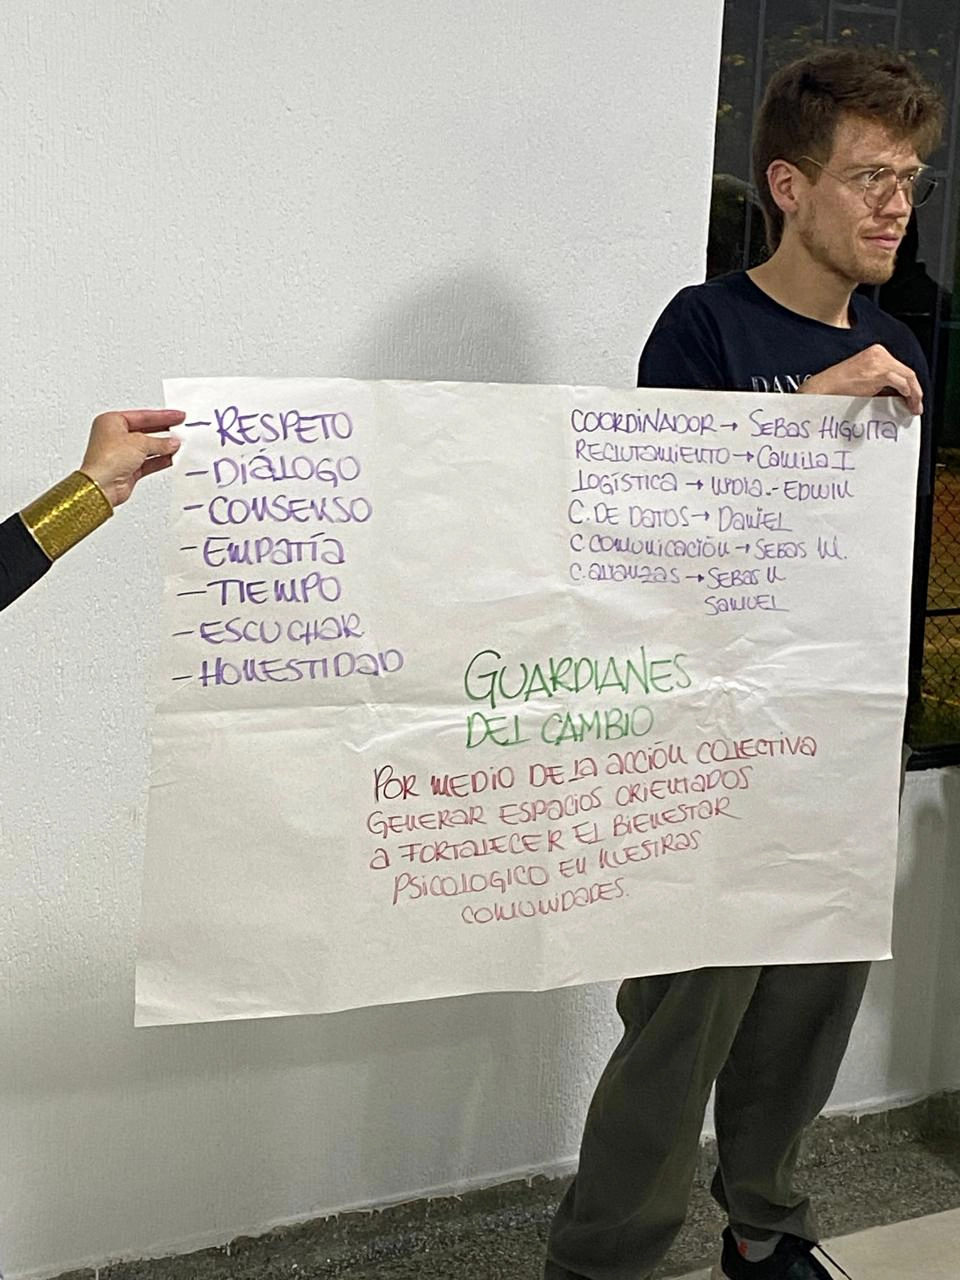 - RESPETO
- DIÁLOGO
- CONSENSO
- EMPATÍA
- TIEMPO
- ESCUCHAR
- HONESTIDAD
COORDINADOR → SEBAS HIGUITA
RECLUTAMIENTO → CAMILA I
LOGÍSTICA → LYDIA - EDWIN
C. DE DATOS → DANIEL
C. COMUNICACIÓN → SEBAS M.
C. ALIANZAS → SEBAS U
SAMUEL
GUARDIANES
DEL CAMBIO
POR MEDIO DE LA ACCIÓN COLECTIVA
GENERAR ESPACIOS ORIENTADOS
A FORTALECER EL BIENESTAR
PSICOLOGICO EN NUESTRAS
COMUNIDADES.